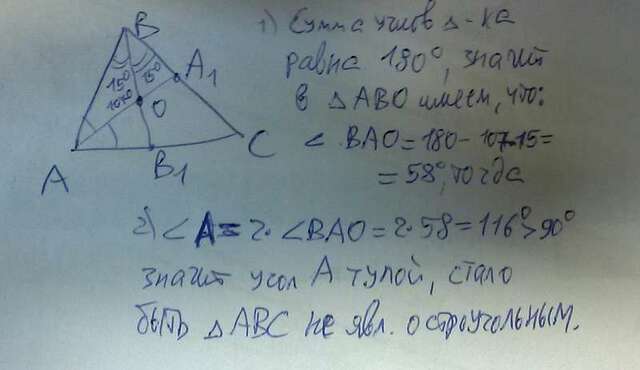 B
15° 15°
A1
107°
O
A
B1
C
1) Сумма углов Δ-ка
равна 180°, значит
в Δ ABO имеем, что:
∠ BAO = 180 - 107-15 =
= 58°, тогда
2) ∠A = 2·∠BAO = 2·58 = 116°>90°
значит угол A тупой, стало
быть Δ ABC не явл. остроугольным.